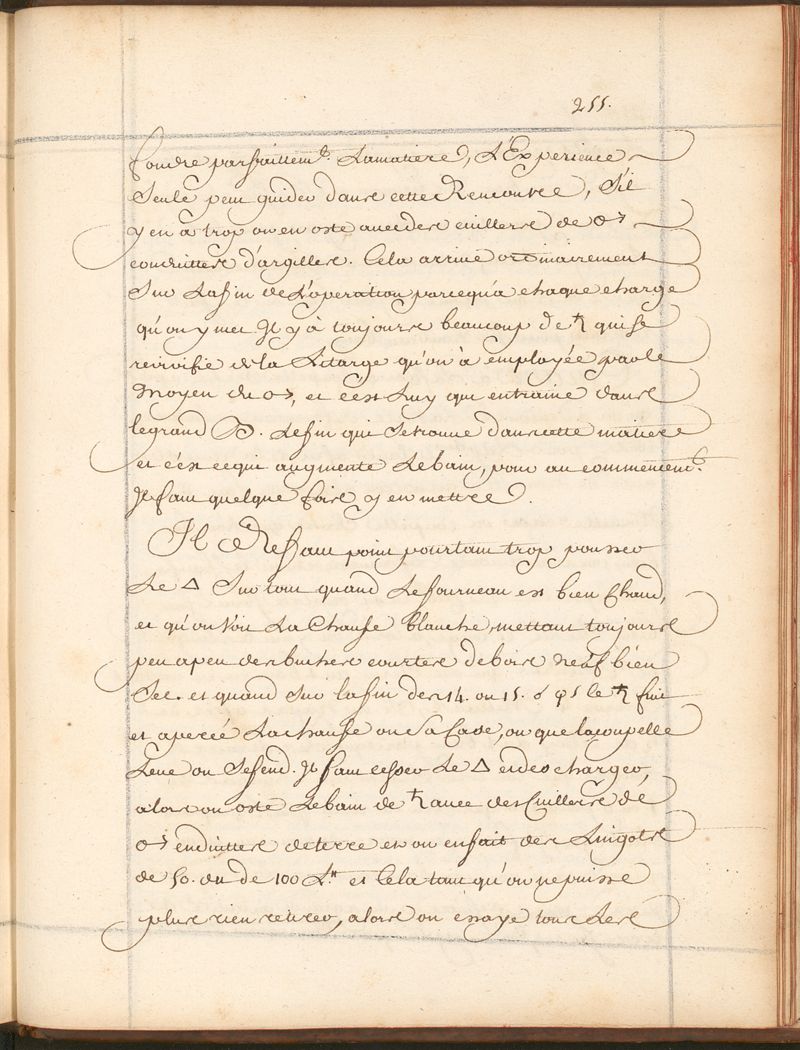 255.
fondre parfaittem.t Lamatiere, L'Experience
Seule peut guider dans cette Rencontre, S'il
y en à trop on en oste avec des cuilleres de ♂
enduittes d'argilles. Cela arrive ordinairement
Sur Lafin de L'operation parcequ'a chaque charge
qu'on y met Jl y à toujours beaucoup de ♄ qui se
revivifie de la Litarge qu'on à employée par le
moyen du ♂, et c'est Luy qui entraine dans
le grand B. Le fin qui Se trouve dans cette matiere
et c'est ce qui augmente Le bain, pour au commencem.t
Jl faut quelque fois y en mettre.
Jl Ne faut point pourtant trop pousser
Le △ Sur tout quand Le fourneau est bien Chaud,
et qu'on Voit La Chausse blanche, mettant toujours
peu a peu des buches courtes de bois neuf bien
Sec. et quand Sur la fin des 14. ou 15. le ♄ fuit
et a percé La chausse ou Sa Case, ou que la coupelle
Leve ou Se fend. Jl faut cesser Le △ et des charger,
alors on oste Le bain de ♄ avec des Cuilleres de
♂ enduittes de terre et on en fait des Lingots
de 50. ou de 100 L.tt et Cela tant qu'on ne puisse
plus rien retirer, alors on essaye tous Les